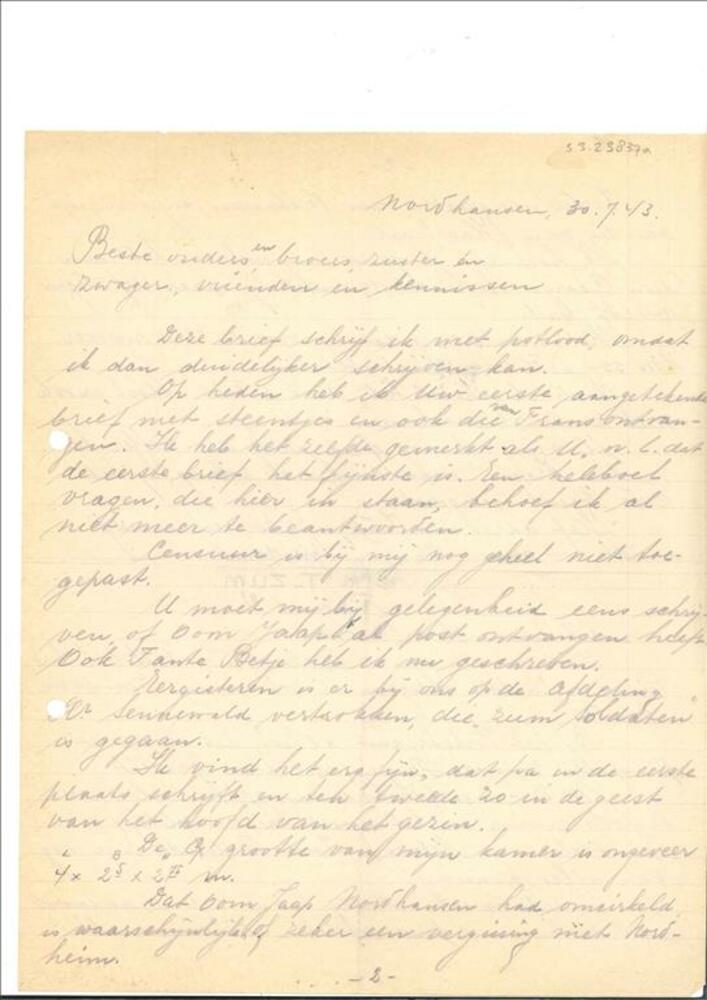 33.23837a
Nordhausen, 30.7.43.
Beste ouders en broers, zuster en
zwager, vrienden en kennissen
Deze brief schrijf ik met potlood, omdat
ik dan duidelijker schrijven kan.
Op heden heb ik Uw eerste aangetekende
brief met steentjes en ook die van Frans ontvan-
gen. Ik heb het zelfde gemerkt als U, n.l. dat
de eerste brief het fijnste is. Een heleboel
vragen, die hier in staan, behoef ik al
niet meer te beantwoorden.
Censuur is bij mij nog geheel niet toe-
gepast.
U moet mij bij gelegenheid eens schrij-
ven, of Oom Jaap al post ontvangen heeft.
Ook Tante Betje heb ik nu geschreven.
Eergisteren is er bij ons op de afdeling
Sennewald vertrokken, die "zum Soldaten"
is gegaan.
Ik vind het erg fijn, dat pa in de eerste
plaats schrijft en ten tweede zo in de geest
van het hoofd van het gezin.
De grootte van mijn kamer is ongeveer
4 x 2 x 2 m.
Dat Oom Jaap Nordhausen had omcirkeld
is waarschijnlijk of zeker een vergissing met Nord-
heim.
-2-